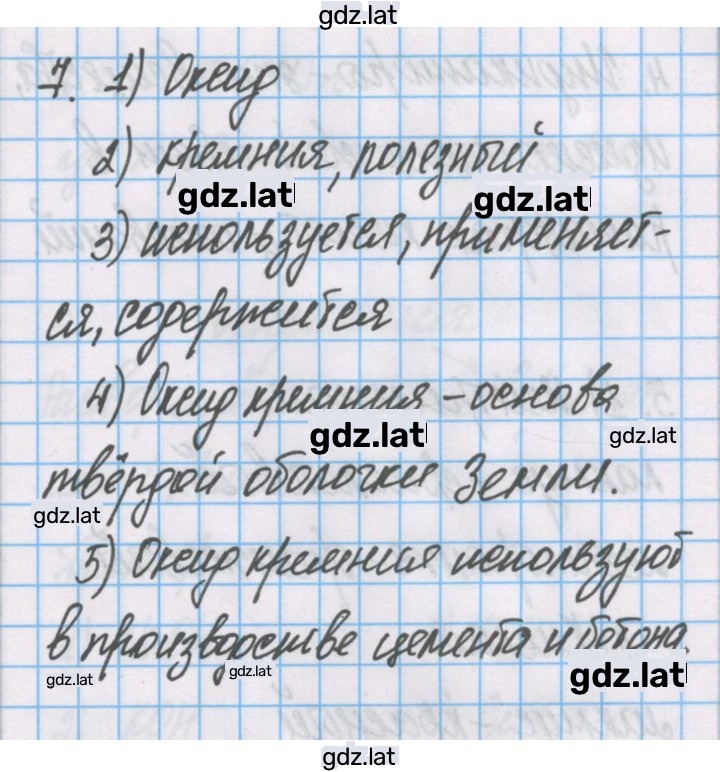 gdz.lat
7. 1) Оксид
2) кремния, полезный
gdz.lat gdz.lat
3) используется, применяет-
ся, содержится
4) Оксид кремния – основа
gdz.lat gdz.lat
твёрдой оболочки Земли.
gdz.lat
5) Оксид кремния используют
в производстве цемента и бетона.
gdz.lat gdz.lat gdz.lat
gdz.lat